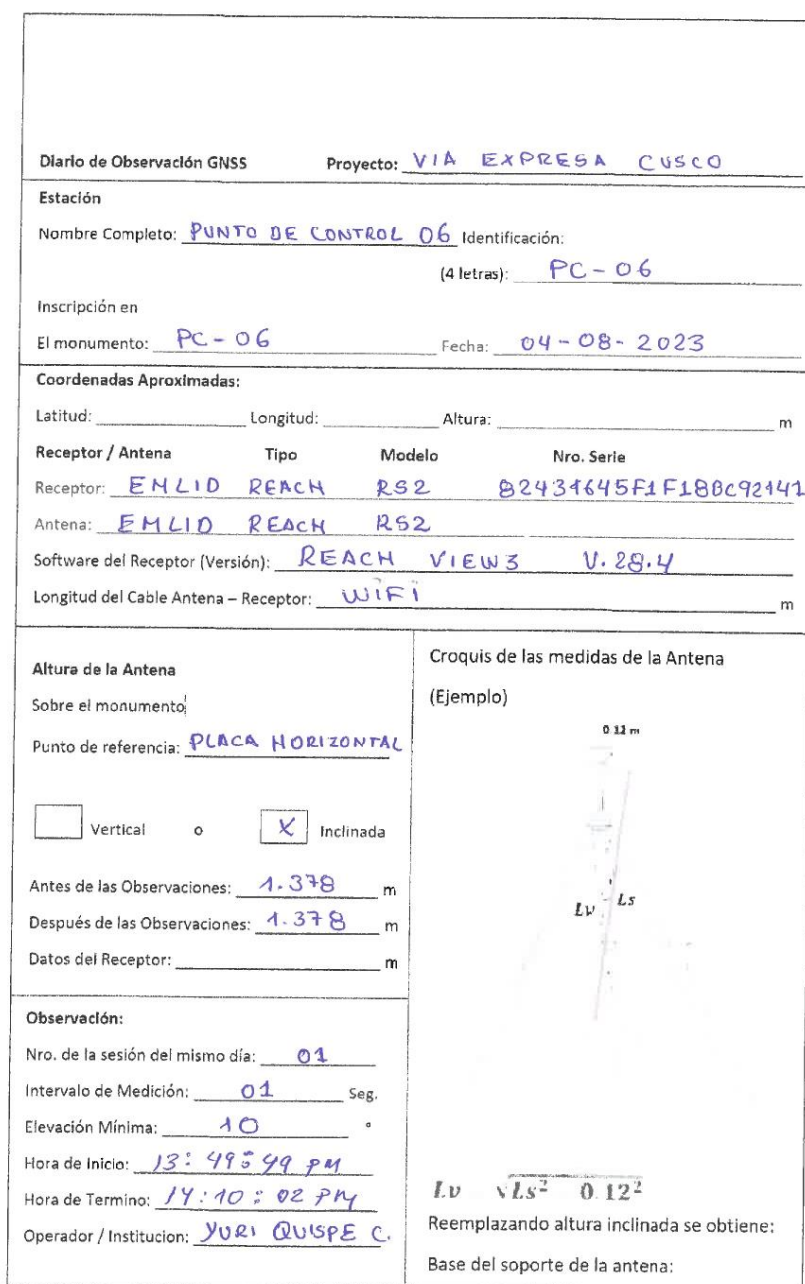 Diario de Observación GNSS Proyecto: VIA EXPRESA CUSCO
Estación
Nombre Completo: PUNTO DE CONTROL 06 Identificación:
(4 letras): PC-06
Inscripción en
El monumento: PC-06 Fecha: 04-08-2023
Coordenadas Aproximadas:
Latitud: Longitud: Altura: m
Receptor / Antena Tipo Modelo Nro. Serie
Receptor: EMLID REACH RS2 82431645F1F18BC92141
Antena: EMLID REACH RS2
Software del Receptor (Versión): REACH VIEW3 V.28.4
Longitud del Cable Antena – Receptor: WIFI m
Altura de la Antena
Sobre el monumento
Punto de referencia: PLACA HORIZONTAL
Vertical o X Inclinada
Antes de las Observaciones: 1.378 m
Después de las Observaciones: 1.378 m
Datos del Receptor: m
Croquis de las medidas de la Antena
(Ejemplo)
0.12 m
Lv Ls
Observación:
Nro. de la sesión del mismo día: 01
Intervalo de Medición: 01 Seg.
Elevación Mínima: 10 °
Hora de Inicio: 13:49:49 PM
Hora de Termino: 14:10:02 PM
Operador / Institucion: YURI QUISPE C.
Lv √Ls² 0.12²
Reemplazando altura inclinada se obtiene:
Base del soporte de la antena: